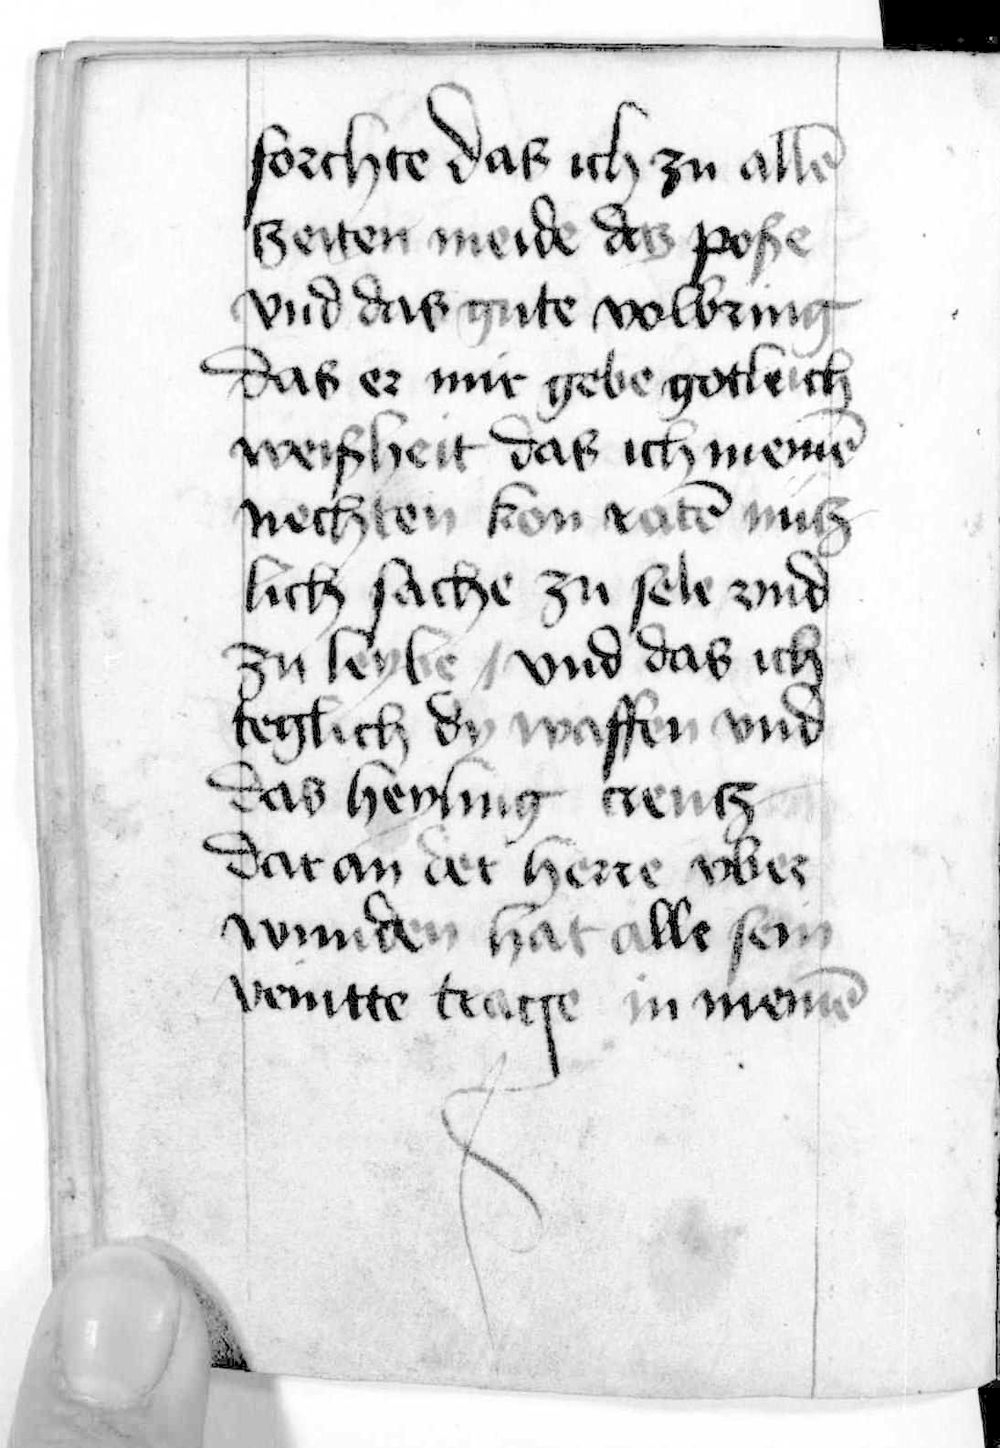 forchte das ich zu allē
tzeiten meide das poße
vnd das gute volbring
das er mir gebe gotleich
weißheit das ich meinē
nechsten kon ratē nutz
lich sache zu sele vnd
zu leybe / vnd das ich
teglich dy waffen vnd
das heyling creutz
dar an der herre vber
wunden hat alle sein
veintte trage in meinē